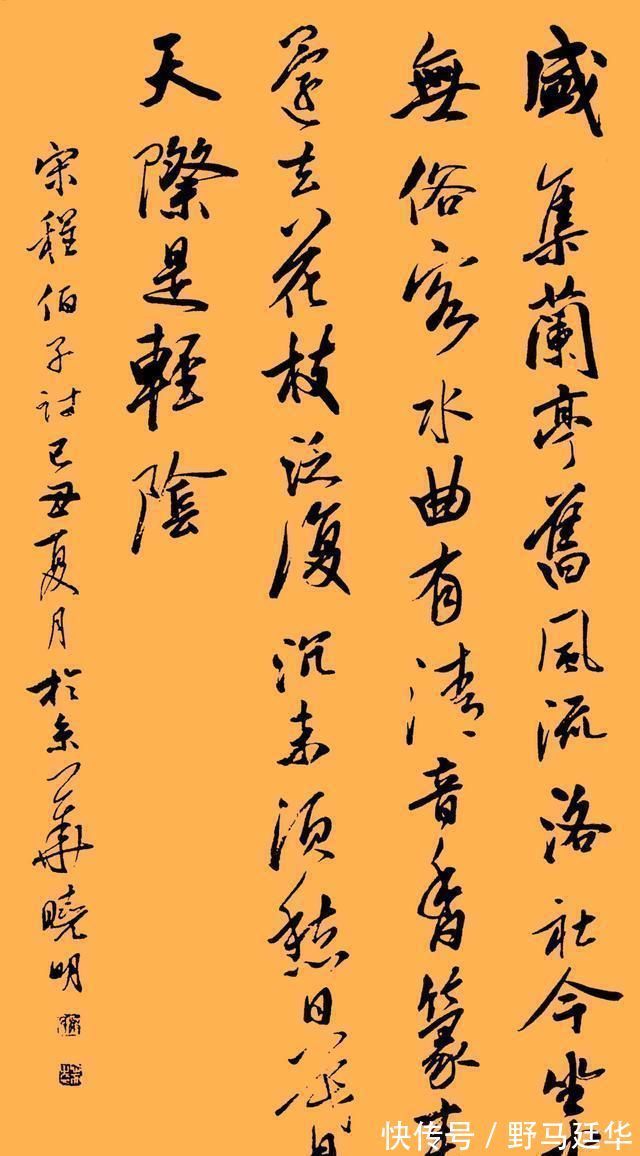 盛集蘭亭舊風流洛社今坐
無俗客水曲有清音香篆來
還去花枝泛復沉未須愁日暮
天際是輕陰
宋程伯子詩己丑夏月於京華曉明
快传号 / 野马廷华